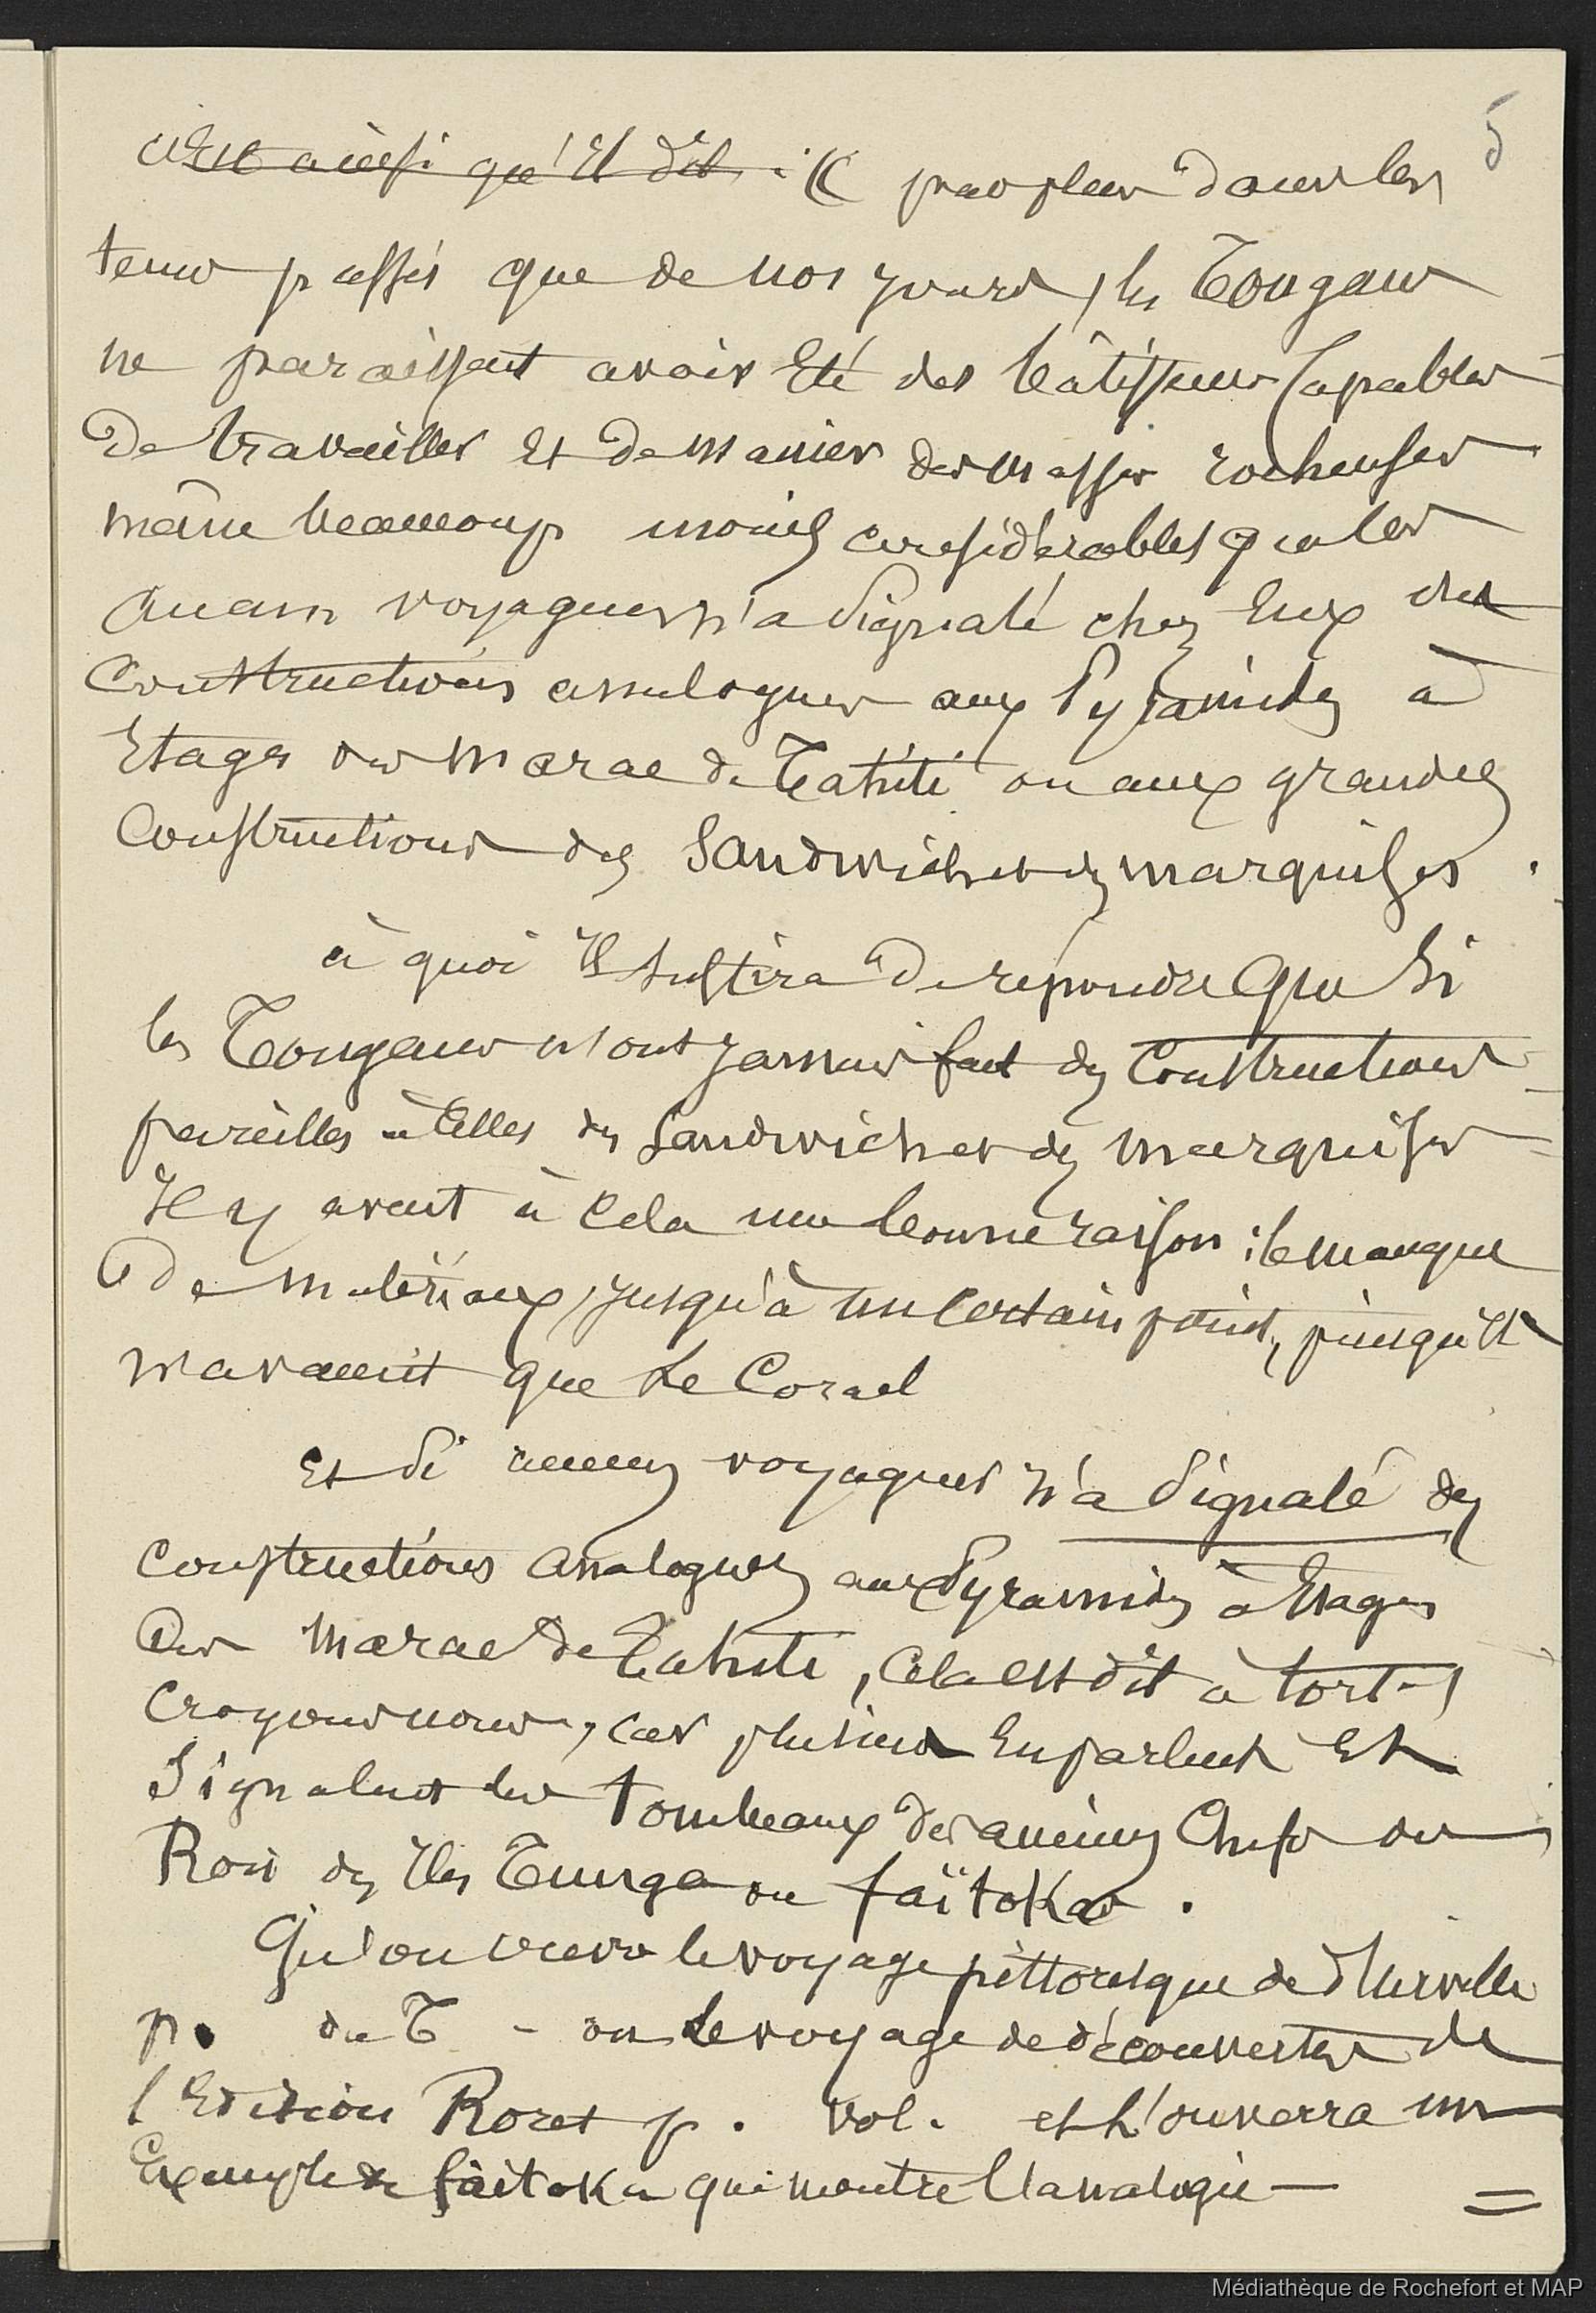 5
C'est ainsi qu'il dit : « pas plus dans les
tems passés que de nos jours, les Tongans
ne paraissent avoir été des bâtisseurs capables
de travailler et de manier des masses rocheuses
même beaucoup moins considérables que les
Aucun voyageur n'a signalé chez eux des
constructions analogues aux Pyramides à
Etages des marae de Tahiti ou aux grandes
Constructions des Sandwiches des marquises.
à quoi il suffira de répondre que si
les Tongans n'ont jamais fait des Constructions
pareilles à celles des Sandwiches des marquises
il y avait à cela une bonne raison : le manque
de matériaux, jusqu'à un certain point, puisqu'ils
n'avaient que le Corail
Et si aucun voyageur n'a signalé des
constructions analogues aux Pyramides à Etages
des marae de Tahiti, cela est dit à tort,
croyons nous, car plusieurs en parlent et
signalent les tombeaux des anciens Chefs ou
Rois des îles Tunga ou faïtoka.
Qu'on ouvre le voyage pittoresque de d'Urville
p. du T - ou le voyage de découvertes de
l'Edition Roret p. vol. et l'on verra un
Exemple de faitoka qui montre l'analogie =
Médiathèque de Rochefort et MAP